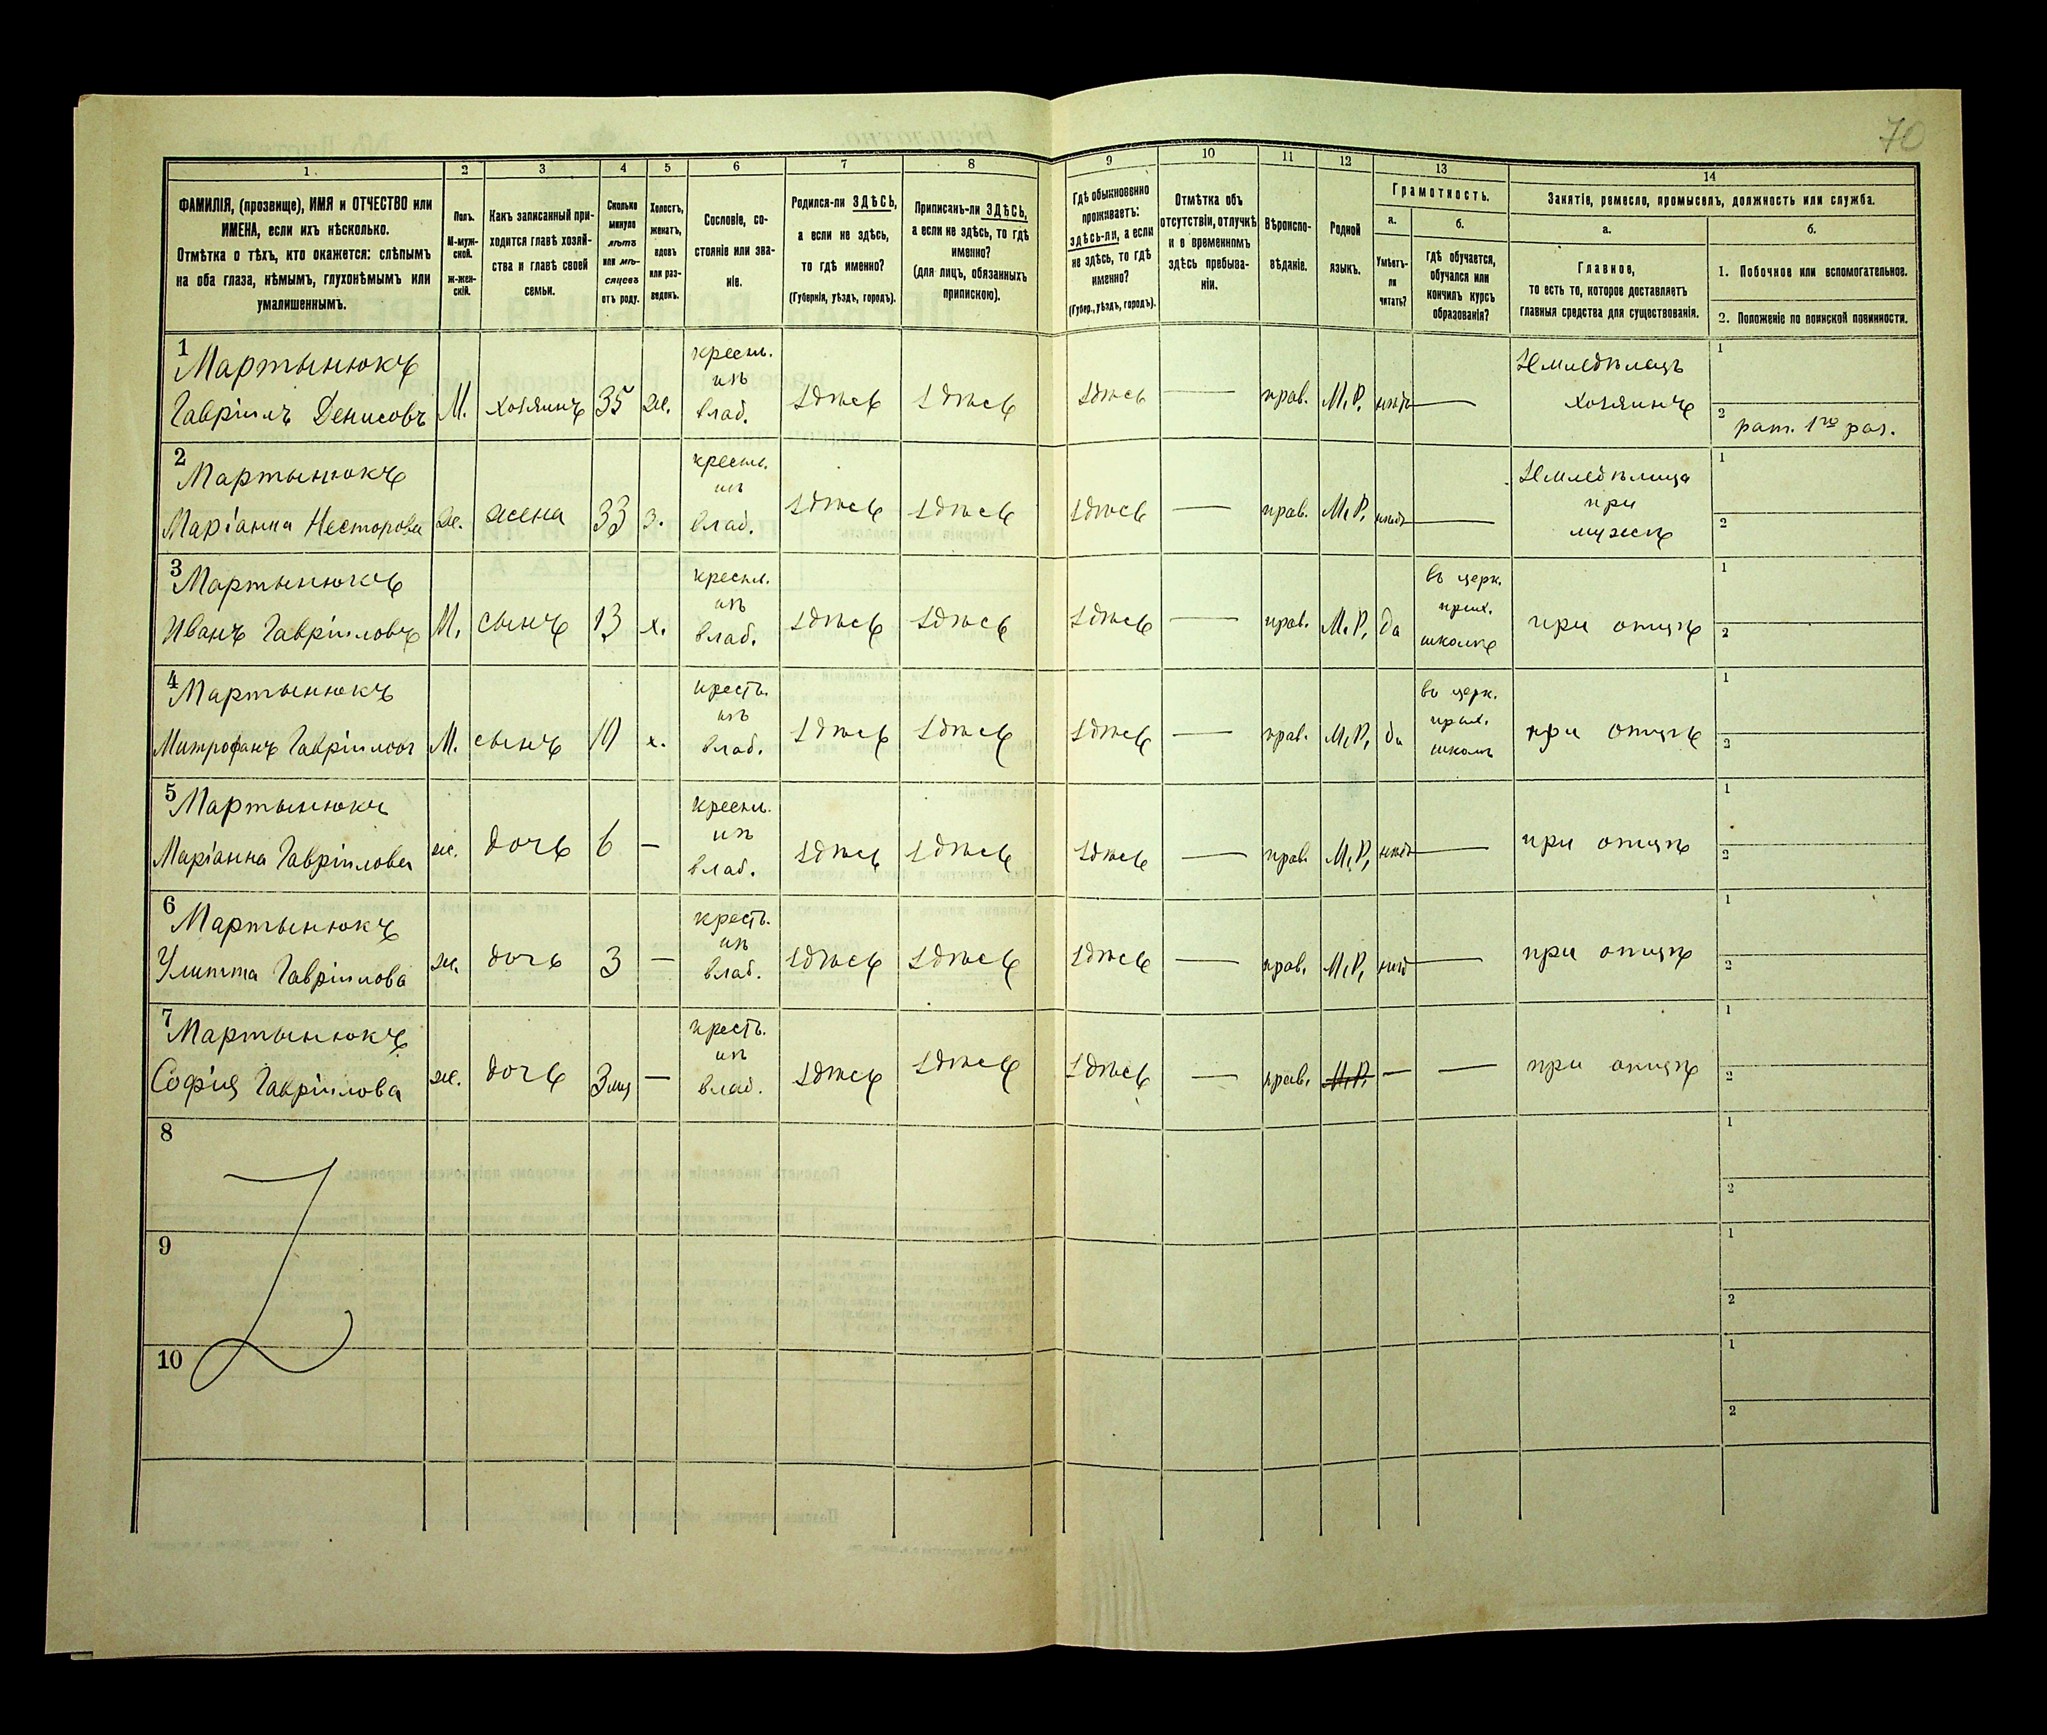 70
1 2 3 4 5 6 7 8 9 10 11 12 13 14
ФАМИЛІЯ, (прозвище), ИМЯ и ОТЧЕСТВО или
ИМЕНА, если ихъ нѣсколько.
Отмѣтка о тѣхъ, кто окажется: слѣпымъ
на оба глаза, нѣмымъ, глухонѣмымъ или
умалишеннымъ.
Полъ.
М-муж-
ской.
Ж-жен-
скій.
Какъ записанный при-
ходится главѣ хозяй-
ства и главѣ своей
семьи.
Сколько
минуло
лѣтъ
или мѣ-
сяцевъ
отъ роду.
Холостъ,
женатъ,
вдовъ
или раз-
веденъ.
Сословіе, со-
стояніе или зва-
ніе.
Родился-ли ЗДѢСЬ,
а если не здѣсь,
то гдѣ именно?
(Губернія, уѣздъ, городъ).
Приписанъ-ли ЗДѢСЬ,
а если не здѣсь, то гдѣ
именно?
(для лицъ, обязанныхъ
припискою).
Гдѣ обыкновенно
проживаетъ:
здѣсь-ли, а если
не здѣсь, то гдѣ
именно?
(Губер., уѣздъ, городъ).
Отмѣтка объ
отсутствіи, отлучкѣ
и о временномъ
здѣсь пребыва-
ніи.
Вѣроиспо-
вѣданіе.
Родной
языкъ.
Грамотность.
а.
Умѣетъ-
ли
читать?
б.
гдѣ обучается,
обучался или
кончилъ курсъ
образованія?
Занятіе, ремесло, промыселъ, должность или служба.
а.
Главное,
то есть то, которое доставляетъ
главныя средства для существованія.
б.
1. Побочное или вспомогательное.
2. Положеніе по воинской повинности.
1
Мартынюкъ
Гавріилъ Денисовъ
М.
хозяинъ
35
же.
крестьн.
изъ
влад.
здѣсь
здѣсь
здѣсь
—
прав.
М.Р.
нѣтъ
—
Землѣдѣлецъ
хозяинъ
1
2
рат. 1го раз.
2
Мартынюкъ
Маріанна Несторова
же.
жена
33
з.
крестьн.
изъ
влад.
здѣсь
здѣсь
здѣсь
—
прав.
М.Р.
нѣтъ
—
Землѣдѣлица
при
мужѣ
1
2
3
Мартынюкъ
Иванъ Гавріиловъ
М.
сынъ
13
х.
крестьн.
изъ
влад.
здѣсь
здѣсь
здѣсь
—
прав.
М.Р.
да
въ церк.
прих.
школѣ
при отцѣ
1
2
4
Мартынюкъ
Митрофанъ Гавріиловъ
М.
сынъ
х.
крестъ.
изъ
влад.
здѣсь
здѣсь
здѣсь
—
прав.
М.Р.
да
въ церк.
прих.
школѣ
при отцѣ
1
2
5
Мартынюкъ
Маріанна Гавріилова
же.
дочь
6
—
крестьн.
изъ
влад.
здѣсь
здѣсь
здѣсь
—
прав.
М.Р.
нѣтъ
—
при отцѣ
1
2
6
Мартынюкъ
Улитта Гавріилова
же.
дочь
3
—
крестъ.
изъ
влад.
здѣсь
здѣсь
здѣсь
—
прав.
М.Р.
нѣтъ
—
при отцѣ
1
2
7
Мартынюкъ
Софія Гавріилова
же.
дочь
3 мц
—
крестъ.
изъ
влад.
здѣсь
здѣсь
здѣсь
—
прав.
М.Р.
—
—
при отцѣ
1
2
8
1
2
9
1
2
10
1
2